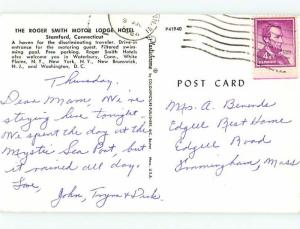 THE ROGER SMITH MOTOR LODGE HOTEL
Stamford, Connecticut
A haven for the discriminating traveler. Drive-in
entrance for the motoring guest. Filtered swim-
ming pool. Free parking. Roger Smith Hotels
also welcome you in Waterbury, Conn., White
Plains, N. Y., New York, N. Y., New Brunswick,
N. J. and Washington, D. C.
P41940
POST CARD
Thursday,
Dear Mam, We're
staying here tonight.
We spent the day at the
Mystic Sea Port but
it rained all day.
Love,
John, & Dick
Mrs. A.
Edgell Rest Home
Edgell Road
Framingham, Mass